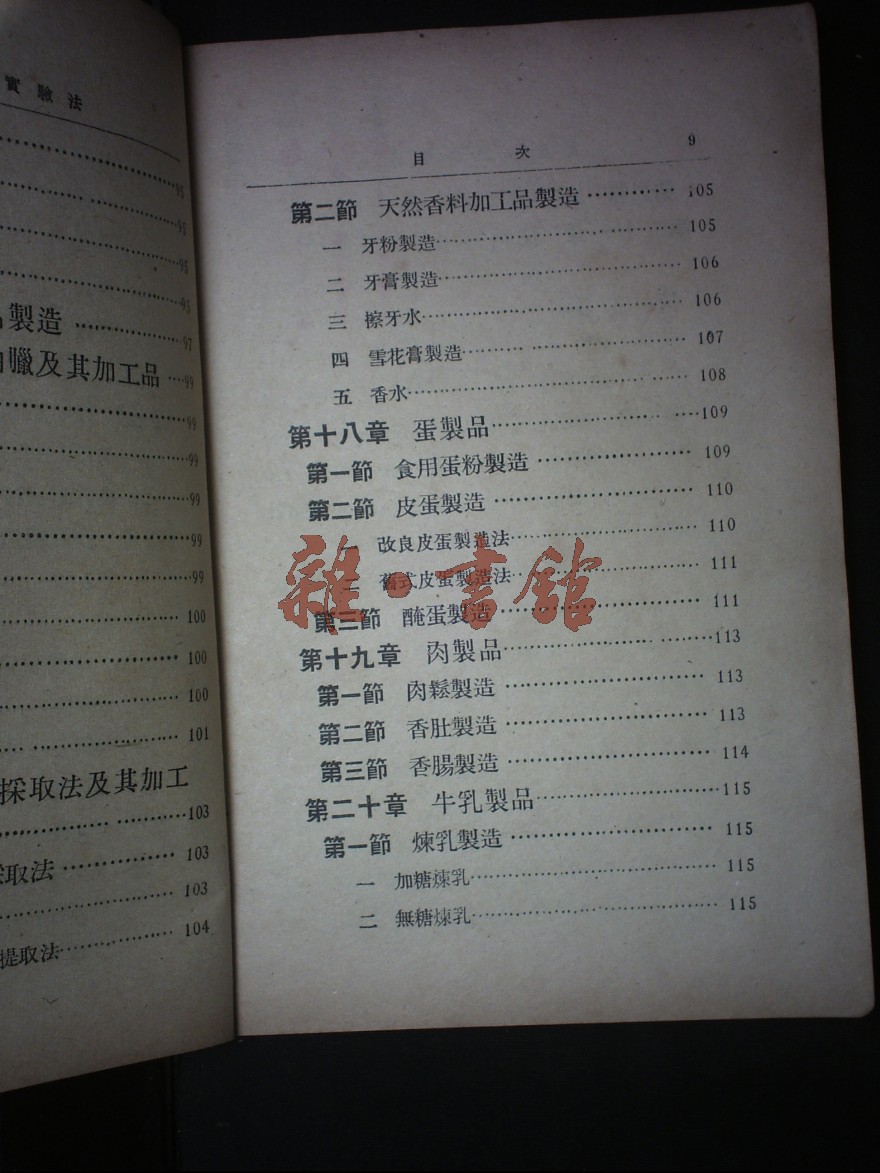 實驗法
95
95
95
95
製造 97
臘及其加工品 99
99
99
99
99
99
100
100
100
101
採取法及其加工
103
取法 103
103
提取法 104
目次 9
第二節 天然香料加工品製造 105
一 牙粉製造 105
二 牙膏製造 106
三 擦牙水 106
四 雪花膏製造 107
五 香水 108
第十八章 蛋製品 109
第一節 食用蛋粉製造 109
第二節 皮蛋製造 110
一 改良皮蛋製造法 110
二 舊式皮蛋製造法 111
第三節 醃蛋製造 111
第十九章 肉製品 113
第一節 肉鬆製造 113
第二節 香肚製造 113
第三節 香腸製造 114
第二十章 牛乳製品 115
第一節 煉乳製造 115
一 加糖煉乳 115
二 無糖煉乳 115
雜·書館